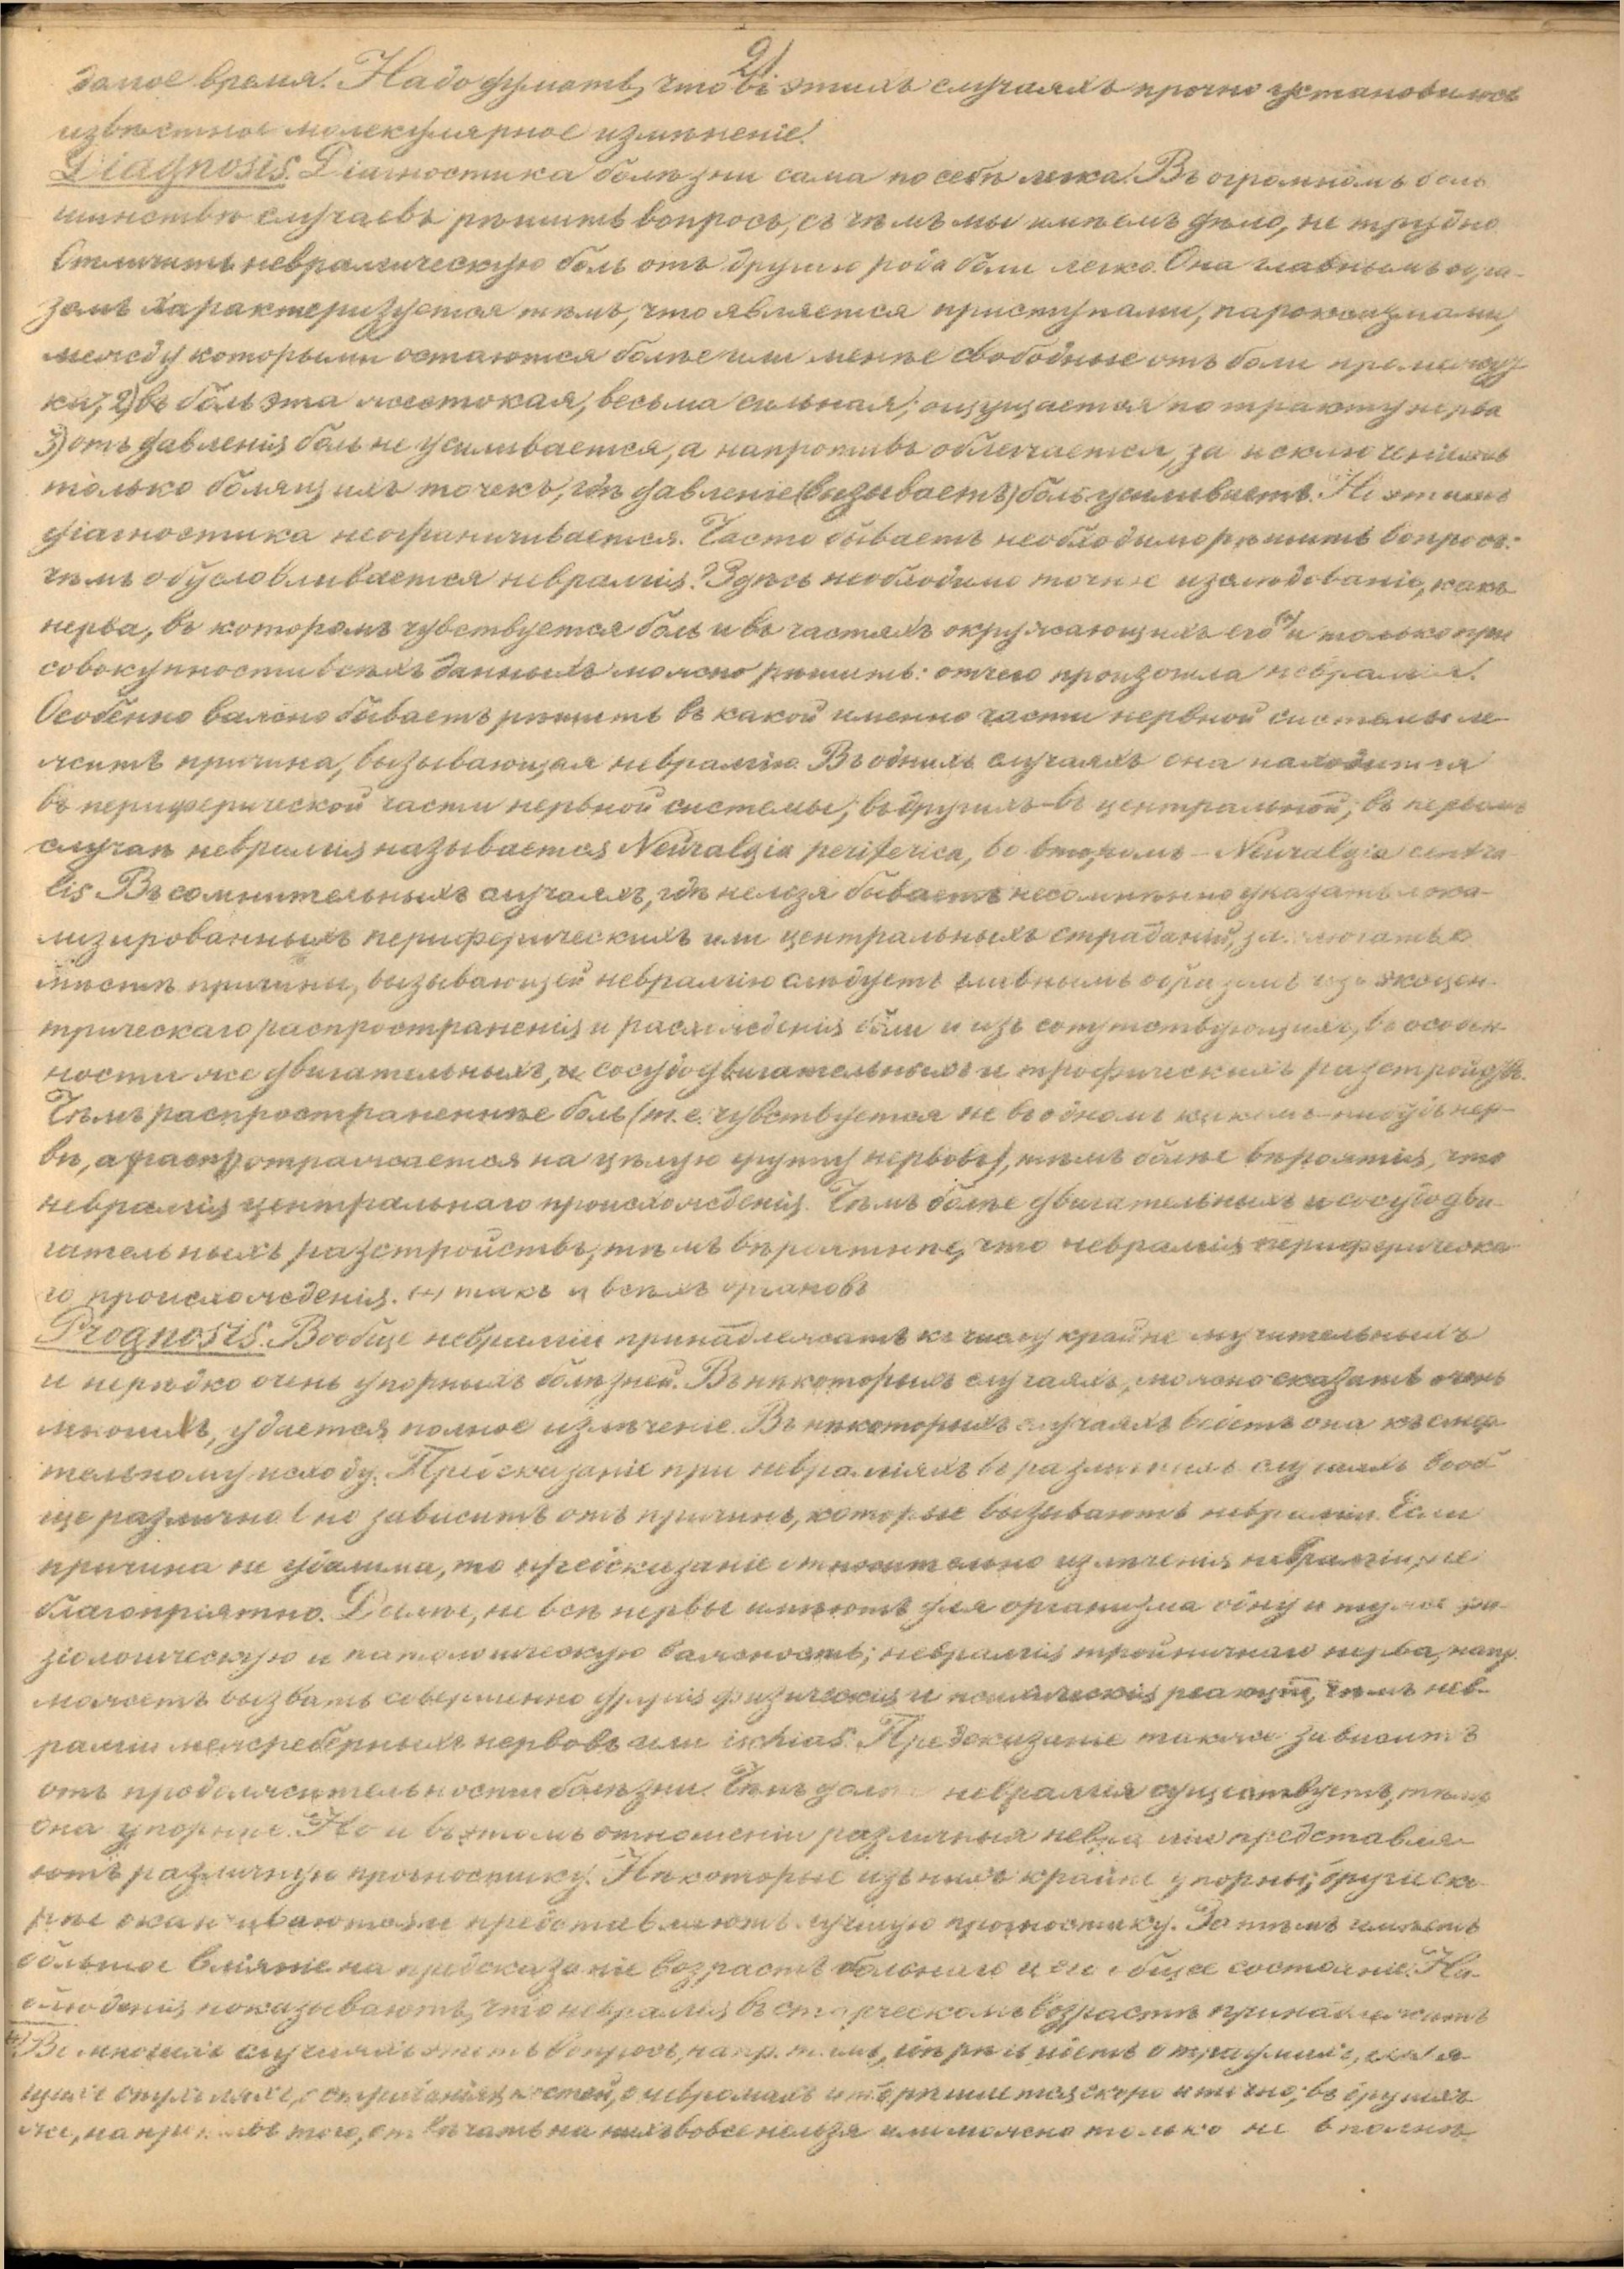 21
самое время. Надо думать, что въ этихъ случаяхъ прочно установилось
извѣстное молекулярное измѣненіе.
Diagnosis. Діагностика болѣзни сама по себѣ легка. Въ огромномъ боль
шинствѣ случаевъ рѣшить вопросъ, съ чѣмъ мы имѣемъ дѣло, не трудно
Отличить невралгическую боль отъ другого рода боли легко. Она главнымъ обра-
зомъ характеризуется тѣмъ, что является приступами, пароксизмами,
между которыми остаются болѣе или менѣе свободные отъ боли промежут
ки, 2) въ боль эта жестокая, весьма сильная, ощущается по тракту нерва
3) отъ давленія боль не усиливается, а напротивъ облегчается, за исключеніемъ
только болящихъ точекъ, гдѣ давленіе (вызываетъ) боль усиливаетъ. Но этимъ
діагностика неограничивается. Часто бываетъ необходимо рѣшить вопросъ:
чѣмъ обусловливается невралгія? Здѣсь необходимо точное изслѣдованіе, какъ
нерва, въ которомъ чувствуется боль и въ частяхъ окружающихъ его (+) и только при
совокупности всѣхъ данныхъ можно рѣшить: отчего произошла невралгія.
Особенно важно бываетъ рѣшить въ какой именно части нервной системы ле-
житъ причина, вызывающая невралгію. Въ однихъ случаяхъ она находится
въ периферической части нервной системы, въ другихъ - въ центральной; въ первомъ
случаѣ невралгія называется Neuralgia periferica, во второмъ - Neuralgia centra
lis Въ сомнительныхъ случаяхъ, гдѣ нельзя бываетъ несомнѣнно указать лока-
лизированныхъ периферическихъ или центральныхъ страданій, о
мѣстѣ причины, вызывающей невралгію слѣдуетъ главнымъ образомъ изъ эксцен-
трическаго распространенія и расхожденія боли и изъ сопутствующихъ, въ особен-
ности же двигательныхъ, и сосудодвигательныхъ и трофическихъ разстройствъ.
Чѣмъ распространеннѣе боль (т.е. чувствуется не въ одномъ какомъ-нибудь нер-
вѣ, а отражается на цѣлую группу нервовъ), тѣмъ болѣе вѣроятія, что
невралгія центральнаго происхожденія. Чѣмъ болѣе двигательныхъ и сосудодви-
гательныхъ разстройствъ, тѣмъ вѣроятнѣе, что невралгія периферическа
го происхожденія. (+) такъ и всѣхъ органовъ
Prognosis. Вообще невралгіи принадлежатъ къ числу крайне мучительныхъ
и нерѣдко очень упорныхъ болѣзней. Въ нѣкоторыхъ случаяхъ, можно сказать очень
многихъ, удается полное излѣченіе. Въ нѣкоторыхъ случаяхъ ведетъ она къ смер
тельному исходу. Предсказаніе при невралгіяхъ въ различныхъ случаяхъ вооб
ще различно и зависитъ отъ причинъ, которые вызываютъ невралгіи. Если
причина не удалима, то предсказаніе относительно излѣченія невралгіи, не
благопріятно. Далѣе, не всѣ нервы имѣютъ для организма одну и туже фи-
зіологическую и патологическую важность; невралгія тройничнаго нерва, напр.
можетъ вызвать совершенно другія физическія и психическія реакціи, чѣмъ нев-
ралгіи межреберныхъ нервовъ или ischias. Предсказаніе также зависитъ
отъ продолжительности болѣзни. Чѣмъ невралгія существуетъ, тѣмъ
она упорнѣе. Но и въ этомъ отношеніи различныя невралгіи представля-
ютъ различную прогностику. Нѣкоторые изъ нихъ крайне упорны, другіе ско-
рѣе оканчиваются и представляютъ лучшую прогностику. Затѣмъ имѣетъ
большое вліяніе на предсказаніе возрастъ больнаго и его общее состояніе. На-
блюденія показываютъ, что невралгія въ старческомъ возрастѣ принадлежитъ
+) Во многихъ случаяхъ этотъ вопросъ, напр. тамъ, гдѣ рѣчь идетъ о травмахъ,
костей, о невромахъ и т.п. рѣшается скоро и точно; въ другихъ
же, того, отвѣчать на нихъ вовсе нельзя или можно только не вполнѣ